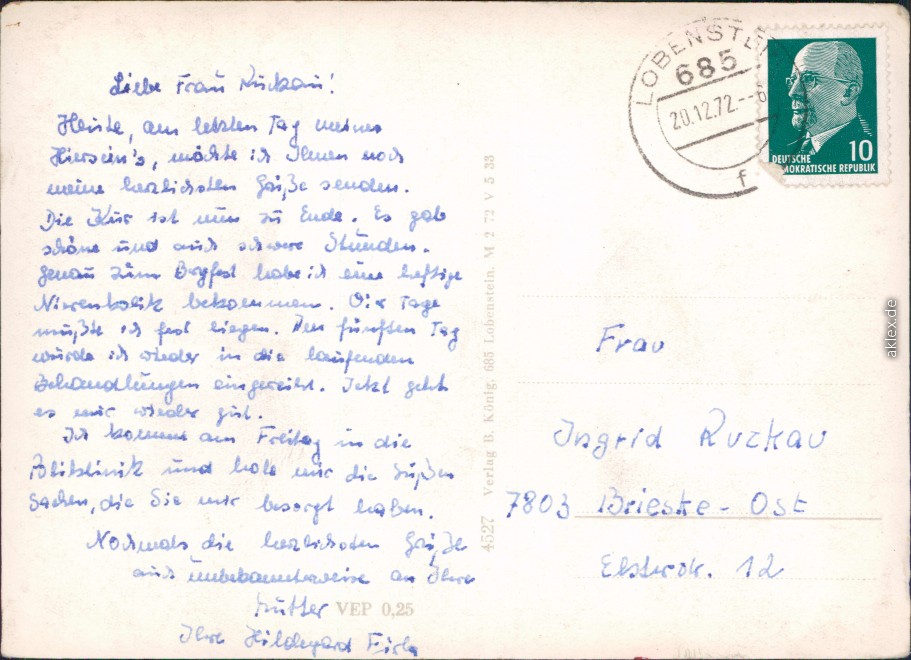 Liebe Frau Ruckau!
Heute, am letzten Tag meines
Hierseins, möchte ich Ihnen noch
meine herzlichsten Grüße senden.
Die Kur ist nun zu Ende. Es gab
schöne und auch schwere Stunden.
Genau zum Bergfest habe ich eine heftige
Nierenkolik bekommen. Vier Tage
mußte ich fest liegen. Den fünften Tag
wurde ich wieder in die laufenden
Behandlungen eingereiht. Jetzt geht
es mir wieder gut.
Ich komme am Freitag in die
Poliklinik und hole mir die süßen
Sachen, die Sie mir besorgt haben.
Nochmals die herzlichsten Grüße
auch unbekannterweise an Ihre
Mutter
Ihre Hildegard
VEP 0,25
4527 Verlag B. König, 685 Lobenstein. M 2 72 V 5 33
LOBENST
685
20.12.72
f
10
DEUTSCHE
MOKRATISCHE REPUBLIK
Frau
Ingrid Ruckau
7803 Brieske-Ost
Elsterstr. 12
aklex.de